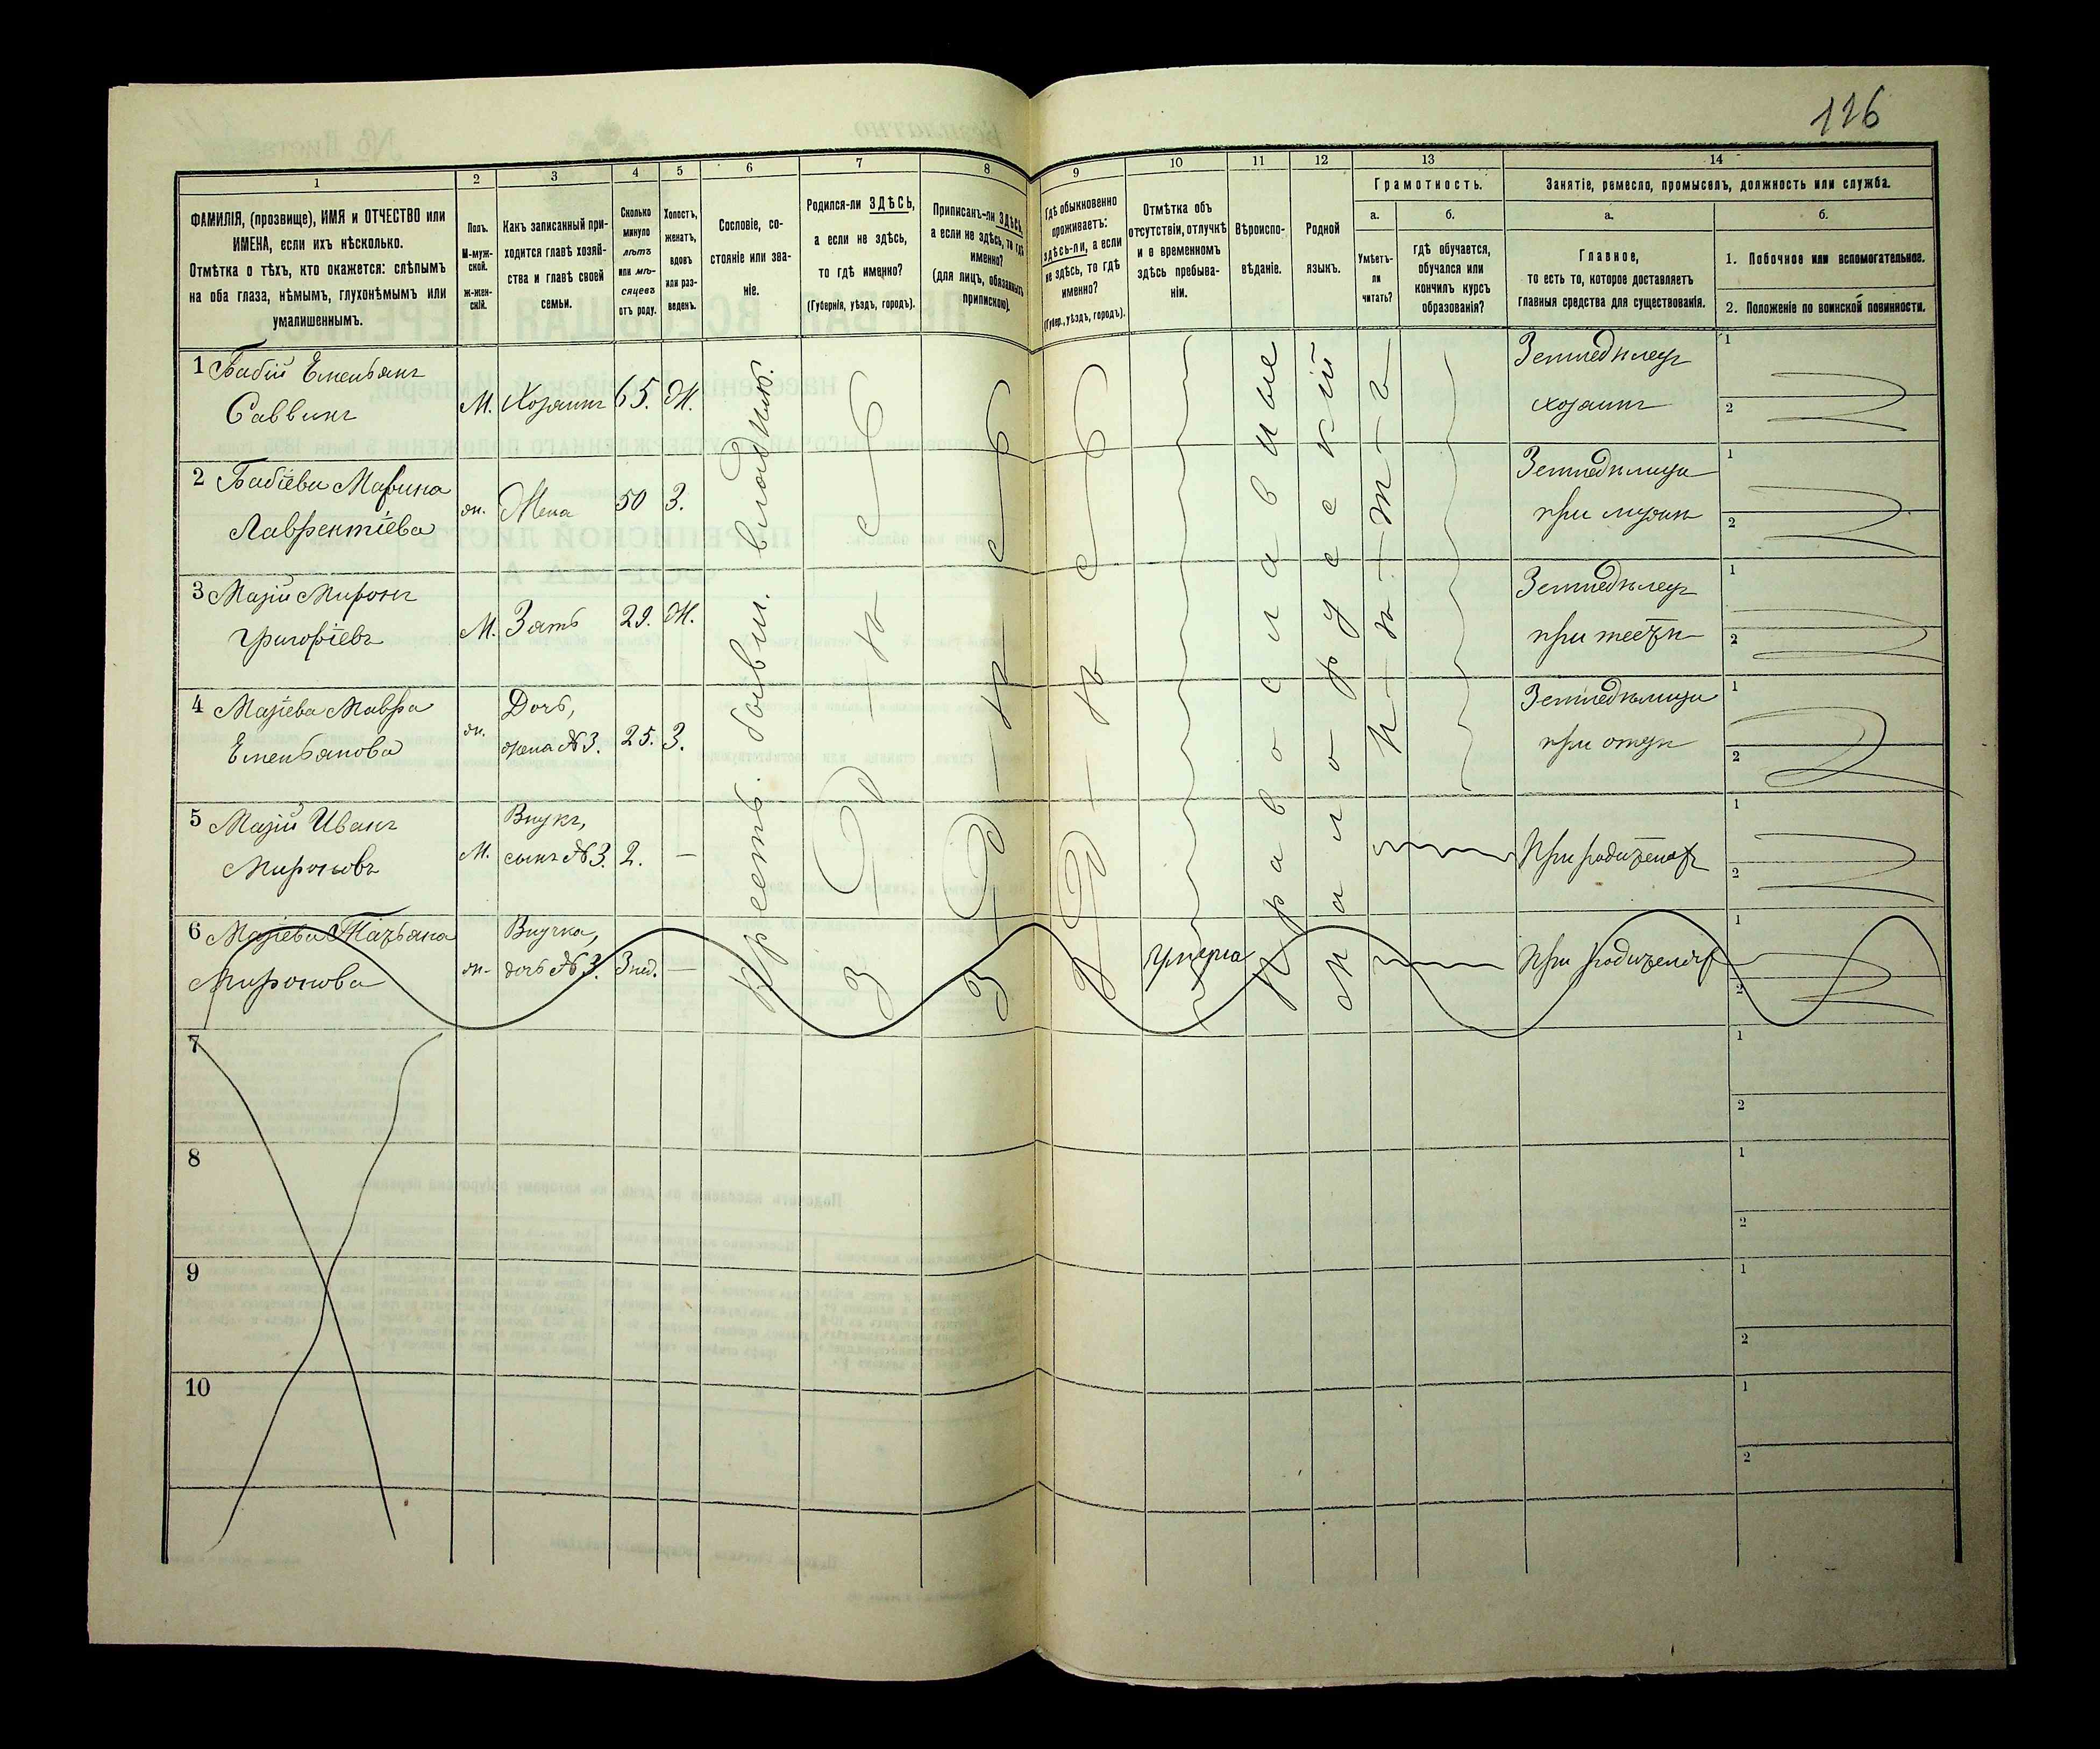 126
1
2
3
4
5
6
7
8
9
10
11
12
13
14
ФАМИЛІЯ, (прозвище), ИМЯ и ОТЧЕСТВО или
ИМЕНА, если ихъ нѣсколько.
Отмѣтка о тѣхъ, кто окажется: слѣпымъ
на оба глаза, нѣмымъ, глухонѣмымъ или
умалишеннымъ.
Полъ.
М-муж-
ской.
ж-жен-
скій.
Какъ записанный при-
ходится главѣ хозяй-
ства и главѣ своей
семьи.
Сколько
минуло
лѣтъ
или мѣ-
сяцевъ
отъ роду.
Холостъ,
женатъ,
вдовъ
или раз-
веденъ.
Сословіе, со-
стояніе или зва-
ніе.
Родился-ли ЗДѢСЬ,
а если не здѣсь,
то гдѣ именно?
(Губернія, уѣздъ, городъ).
Приписанъ-ли ЗДѢСЬ,
а если не здѣсь, то гдѣ
именно?
(для лицъ, обязанныхъ
припискою).
Гдѣ обыкновенно
проживаетъ:
здѣсь-ли, а если
не здѣсь, то гдѣ
именно?
(Губер., уѣздъ, городъ).
Отмѣтка объ
отсутствіи, отлучкѣ
и о временномъ
здѣсь пребыва-
ніи.
Вѣроиспо-
вѣданіе.
Родной
языкъ.
Грамотность.
а.
Умѣетъ-
ли
читать?
б.
гдѣ обучается,
обучался или
кончилъ курсъ
образованія?
Занятіе, ремесло, промыселъ, должность или служба.
а.
Главное,
то есть то, которое доставляетъ
главныя средства для существованія.
б.
1. Побочное или вспомогательное.
2. Положеніе по воинской повинности.
1 Бабій Емельянъ
Саввинъ
М. Хозяинъ 65. Ж.
Земледѣлецъ
хозяинъ
1
2
2 Бабіева Марина
Лаврентіева
ж. Жена 50 З.
Земледѣлица
при мужѣ
1
2
3 Мазій Миронъ
Григоріевъ
М. Зять 29. Ж.
Земледѣлецъ
при тестѣ
1
2
4 Мазіева Мавра
Емельянова
ж. Дочь,
жена №3. 25. З.
Земледѣлица
при отцѣ
1
2
5 Мазій Иванъ
Мироновъ
М. Внукъ,
сынъ №3. 2. —
При родителяхъ
1
2
6 Мазіева Татьяна
Миронова
ж. Внучка,
дочь №3. 3 нед. —
Умерла
При родителяхъ
1
2
Крестъ. бывш. владѣльч.
З д ѣ с ь
З д ѣ с ь
З д ѣ с ь
Православные
Малорусскій
н ѣ т ъ
7
1
2
8
1
2
9
1
2
10
1
2